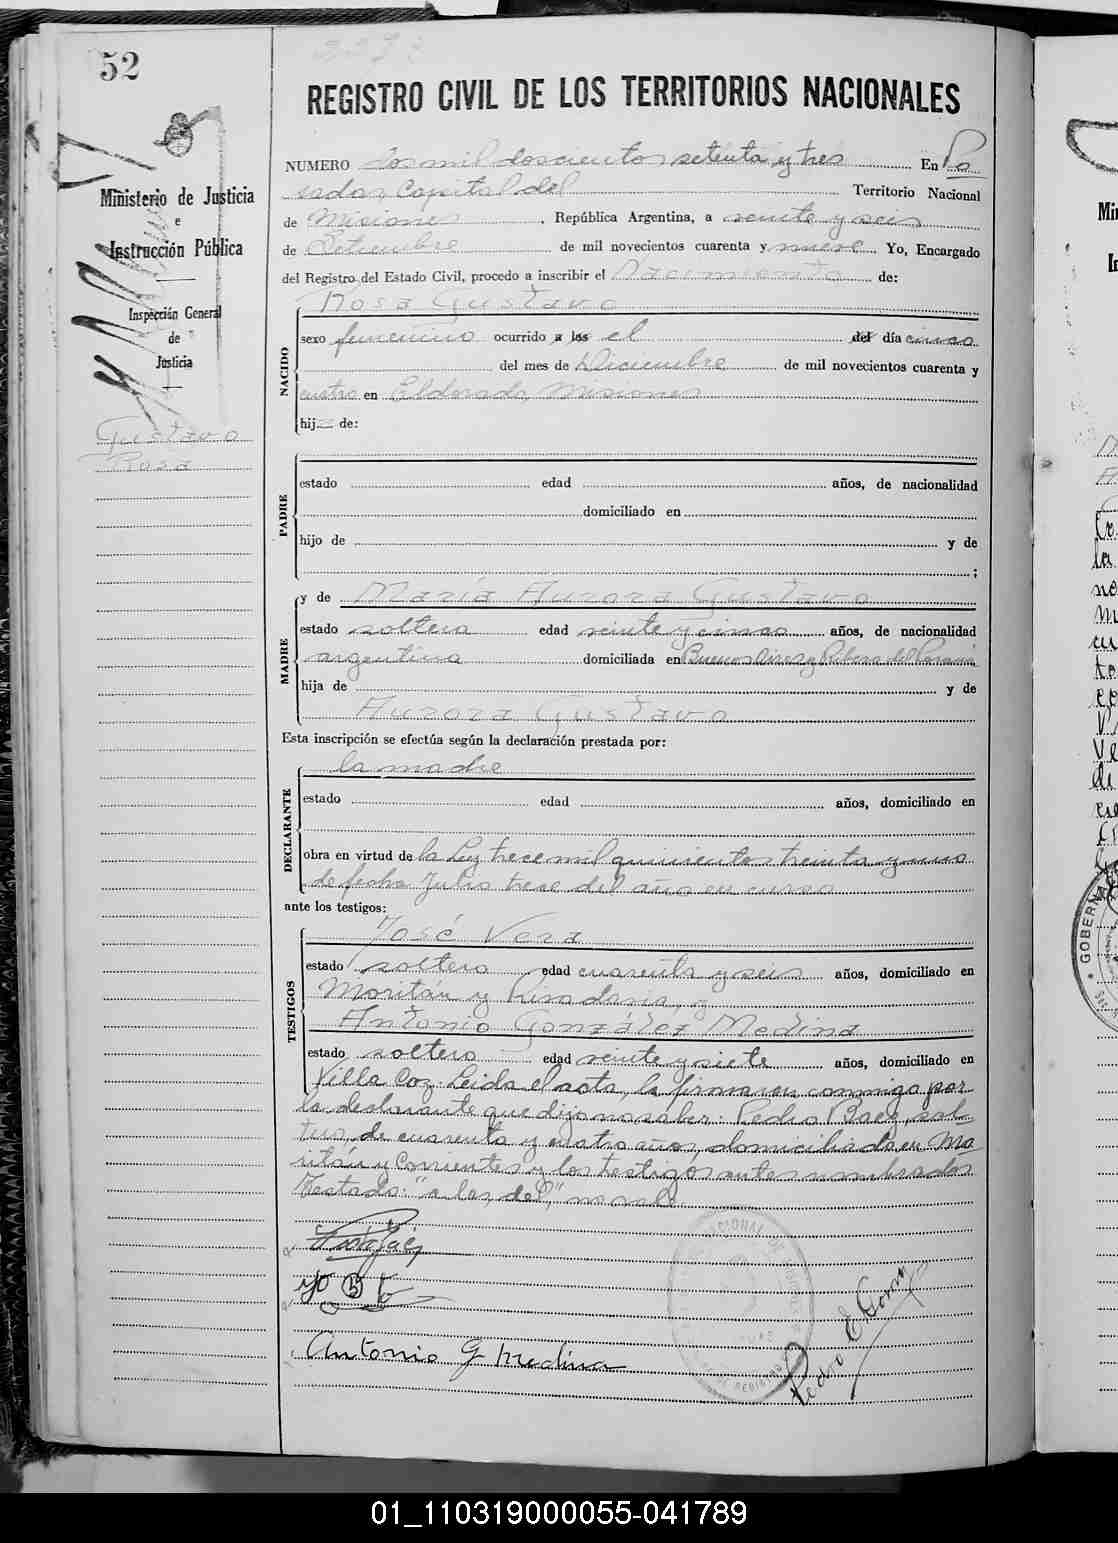 52
Ministerio de Justicia
e
Instrucción Pública
Inspección General
de
Justicia
Gustavo
Rosa
REGISTRO CIVIL DE LOS TERRITORIOS NACIONALES
NUMERO dos mil doscientos setenta y tres En Po
sadas, Capital del Territorio Nacional
de Misiones, República Argentina, a veinte y seis
de Setiembre de mil novecientos cuarenta y nueve Yo, Encargado
del Registro del Estado Civil, procedo a inscribir el Nacimiento de:
Rosa Gustavo
NACIDO
sexo femenino ocurrido a las el del día cinco
del mes de Diciembre de mil novecientos cuarenta y
cuatro en Eldorado, Misiones
hij de:
PADRE
estado edad años, de nacionalidad
domiciliado en
hijo de y de
;
MADRE
y de María Aurora Gustavo
estado soltera edad veinte y cinco años, de nacionalidad
argentina domiciliada en Buenos Aires y Ribera del Paraná
hija de y de
Aurora Gustavo
Esta inscripción se efectúa según la declaración prestada por:
DECLARANTE
la madre
estado edad años, domiciliado en
obra en virtud de la Ley trece mil quinientos treinta y uno
de fecha Julio trece del año en curso
ante los testigos:
TESTIGOS
José Vera
estado soltero edad cuarenta y seis años, domiciliado en
Moritán y Rivadavia, y
Antonio González Medina
estado soltero edad veinte y siete años, domiciliado en
Villa Coz. Leida el acta, la firmaron conmigo por
la declarante que dijo no saber: Pedro Báez, sol-
tero, de cuarenta y cuatro años, domiciliado en Mo
ritán y Corrientes y los testigos antes nombrados
Testado: "a las, del," no vale
Antonio G Medina
01_110319000055-041789